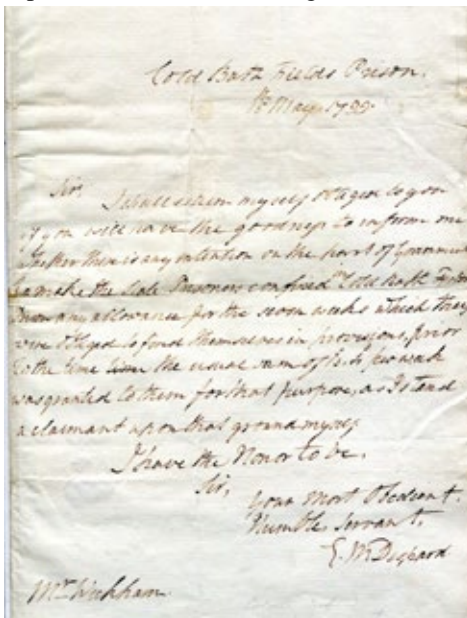 Cold Bath Fields Prison.
May 1799.
Sir,
I shall esteem myself obliged to you
if you will have the goodness to inform me
whether there is any intention on the part of Government
to make the State Prisoners confined Cold Bath Fields
Prison any allowance for the seven weeks which they
were obliged to find themselves in provisions, prior
to the time the usual sum of pr week
was granted to them for that purpose, as I stand
a claimant upon that ground myself
I have the Honor to be,
Sir,
Your Most Obedient,
Humble Servant,
E. M. Despard
Mr Wickham